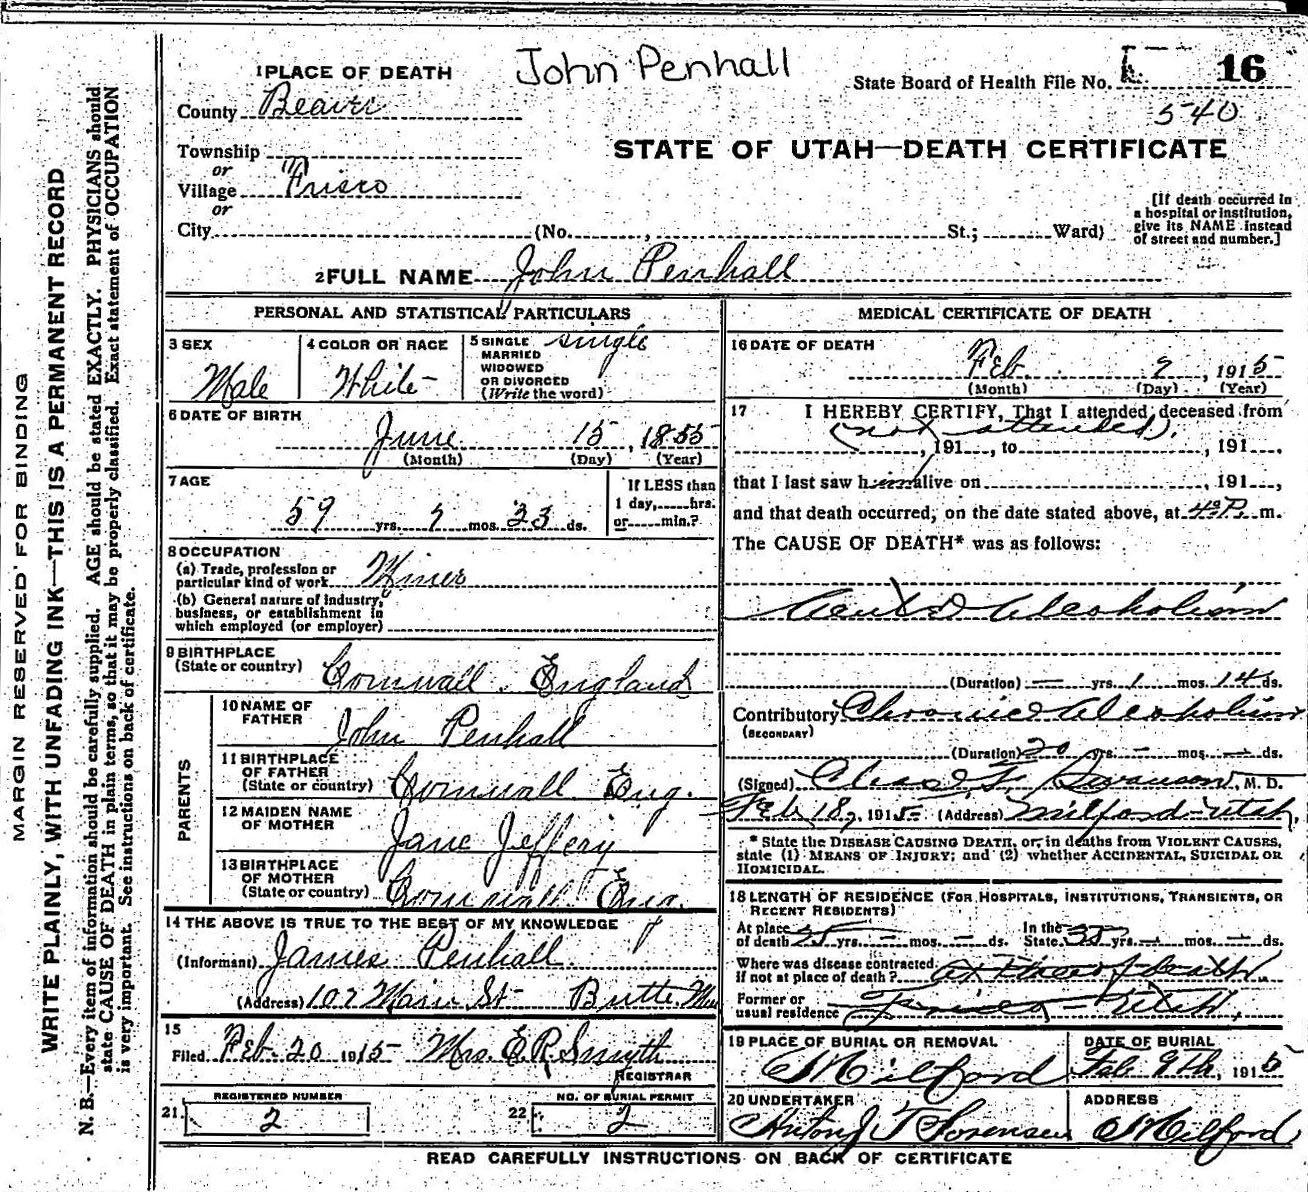 John Penhall
1 PLACE OF DEATH
State Board of Health File No. 16
County Beaver
540
STATE OF UTAH—DEATH CERTIFICATE
Township
or
Village Frisco
or
City (No. , St.; Ward)
[If death occurred in
a hospital or institution,
give its NAME instead
of street and number.]
2 FULL NAME John Penhall
PERSONAL AND STATISTICAL PARTICULARS
3 SEX
Male
4 COLOR OR RACE
White
5 SINGLE
MARRIED
WIDOWED
OR DIVORCED
(Write the word)
single
6 DATE OF BIRTH
June 15, 1855
(Month) (Day) (Year)
7 AGE
59 yrs. 7 mos. 23 ds.
If LESS than
1 day, hrs.
or min.?
8 OCCUPATION
(a) Trade, profession or
particular kind of work Miner
(b) General nature of Industry,
business, or establishment in
which employed (or employer)
9 BIRTHPLACE
(State or country) Cornwall, England
PARENTS
10 NAME OF
FATHER John Penhall
11 BIRTHPLACE
OF FATHER
(State or country) Cornwall Eng.
12 MAIDEN NAME
OF MOTHER Jane Jeffery
13 BIRTHPLACE
OF MOTHER
(State or country) Cornwall Eng.
14 THE ABOVE IS TRUE TO THE BEST OF MY KNOWLEDGE
(Informant) James Penhall
(Address) 107 Main St Butte
15
Filed Feb. 20 1915 Mrs. E. R. Smyth
REGISTRAR
REGISTERED NUMBER
21. 2
NO. OF BURIAL PERMIT
22 2
MEDICAL CERTIFICATE OF DEATH
16 DATE OF DEATH
Feb , 1915
(Month) (Day) (Year)
17 I HEREBY CERTIFY, That I attended deceased from
(not attended).
, 191 , to , 191 ,
that I last saw him alive on , 191 ,
and that death occurred, on the date stated above, at 4 P. m.
The CAUSE OF DEATH* was as follows:
Alcoholism
(Duration) — yrs. 1 mos. 14 ds.
Contributory Chronic Alcoholism
(SECONDARY)
(Duration) 20 yrs. — mos. — ds.
(Signed) Chas. F. Swanson, M. D.
Feb 18, 1915 (Address) Milford-Utah,
* State the DISEASE CAUSING DEATH, or, in deaths from VIOLENT CAUSES,
state (1) MEANS OF INJURY; and (2) whether ACCIDENTAL, SUICIDAL OR
HOMICIDAL.
18 LENGTH OF RESIDENCE (FOR HOSPITALS, INSTITUTIONS, TRANSIENTS, OR
RECENT RESIDENTS)
At place
of death yrs. — mos. — ds.
In the
State 35 yrs. — mos. — ds.
Where was disease contracted
if not at place of death? at Place of death
Former or
usual residence Frisco — Utah,
19 PLACE OF BURIAL OR REMOVAL
Milford
DATE OF BURIAL
Feb 9th, 1915
20 UNDERTAKER
Anton J T Sorensen
ADDRESS
Milford
READ CAREFULLY INSTRUCTIONS ON BACK OF CERTIFICATE
MARGIN RESERVED FOR BINDING
WRITE PLAINLY, WITH UNFADING INK—THIS IS A PERMANENT RECORD
N. B.—Every item of information should be carefully supplied. AGE should be stated EXACTLY. PHYSICIANS should
state CAUSE OF DEATH in plain terms, so that it may be properly classified. Exact statement of OCCUPATION
is very important. See instructions on back of certificate.